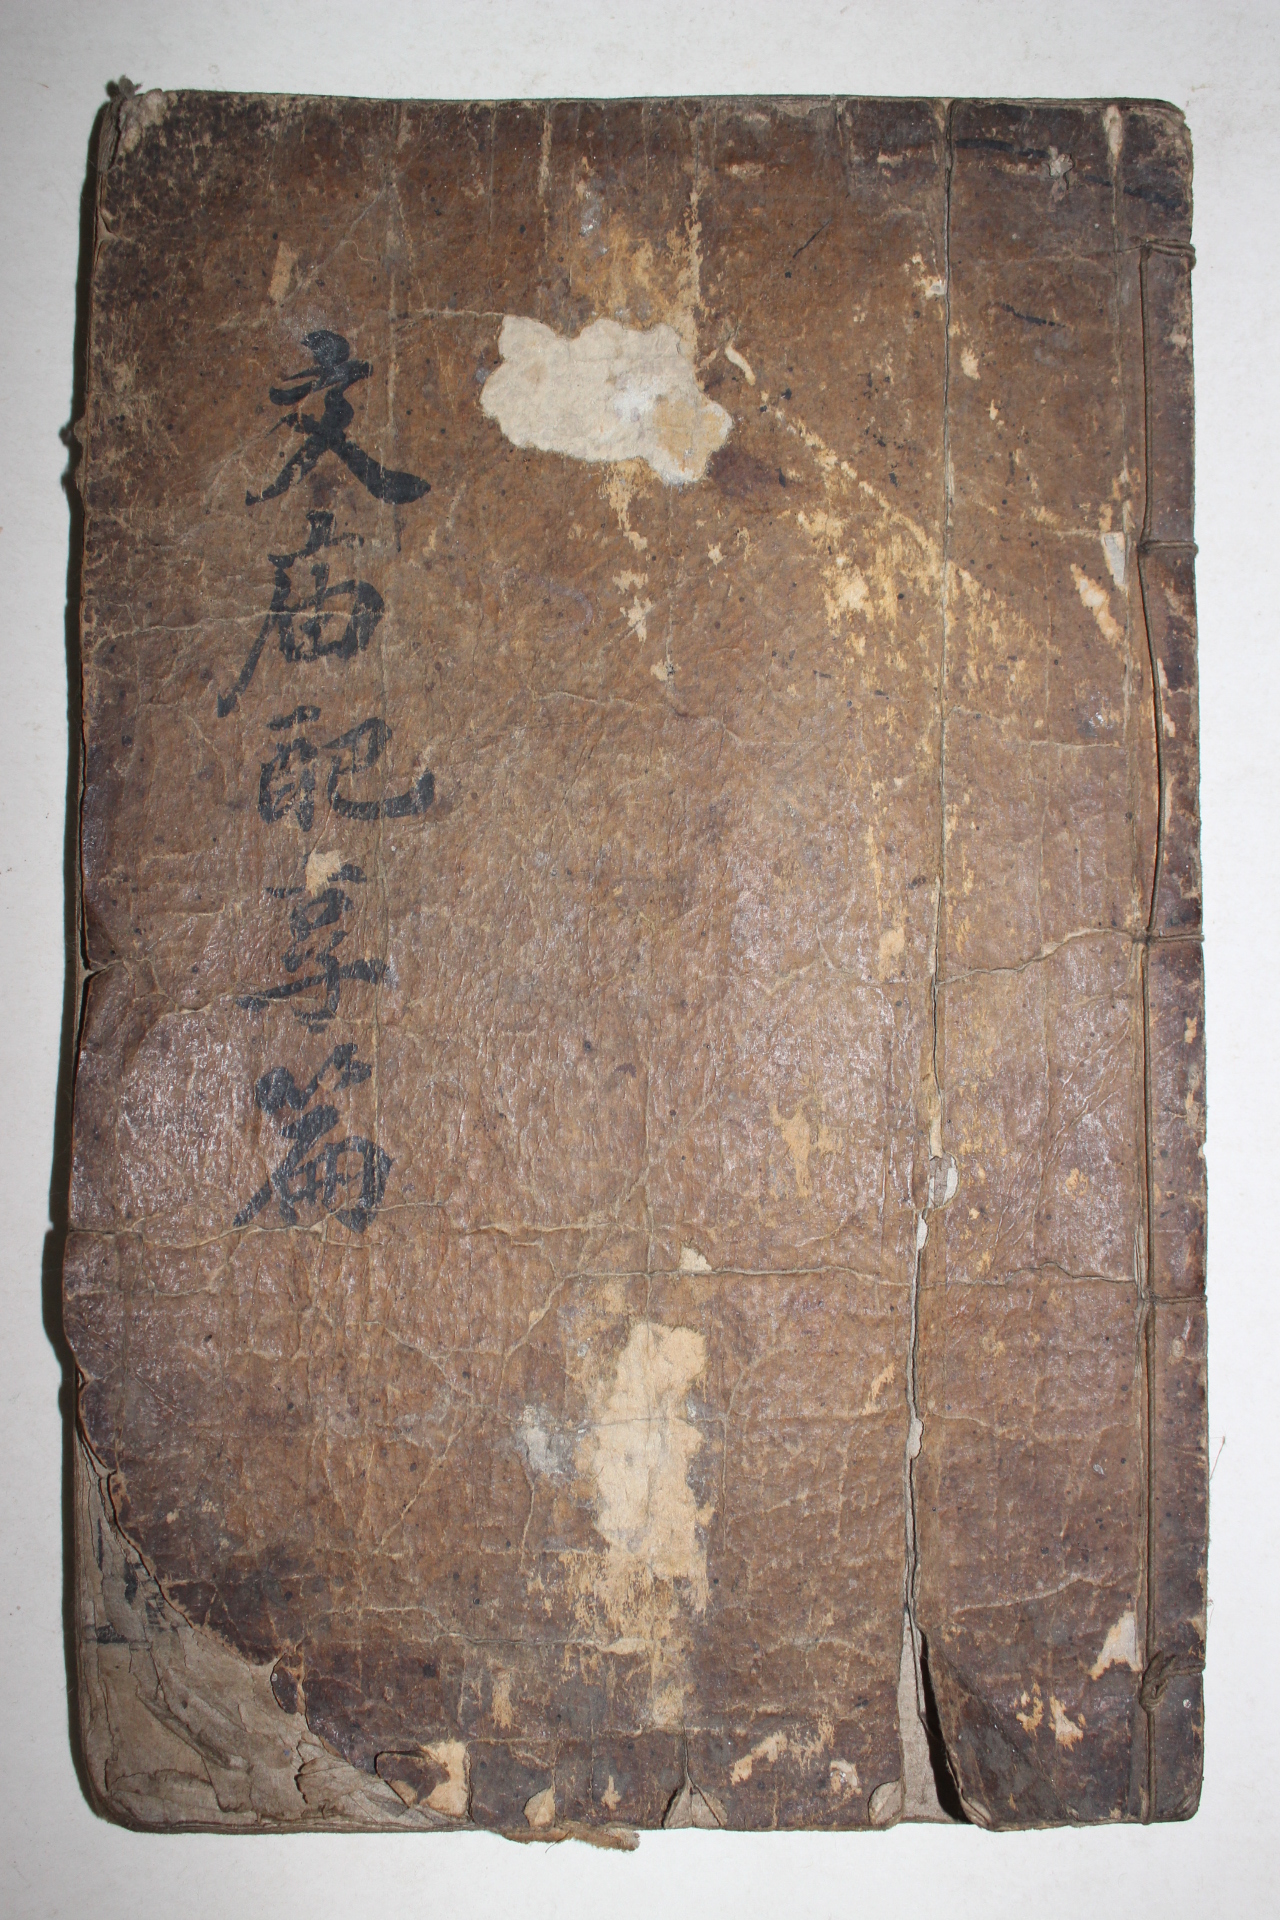 文庙配享篇